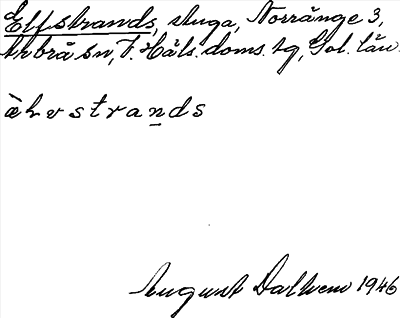 Elfstrands, stuga, Norränge 3,
Arbrå sn, V. Häls. doms. tg, Gvl. län.
ælvstran̲ds
August Dalhem 1946